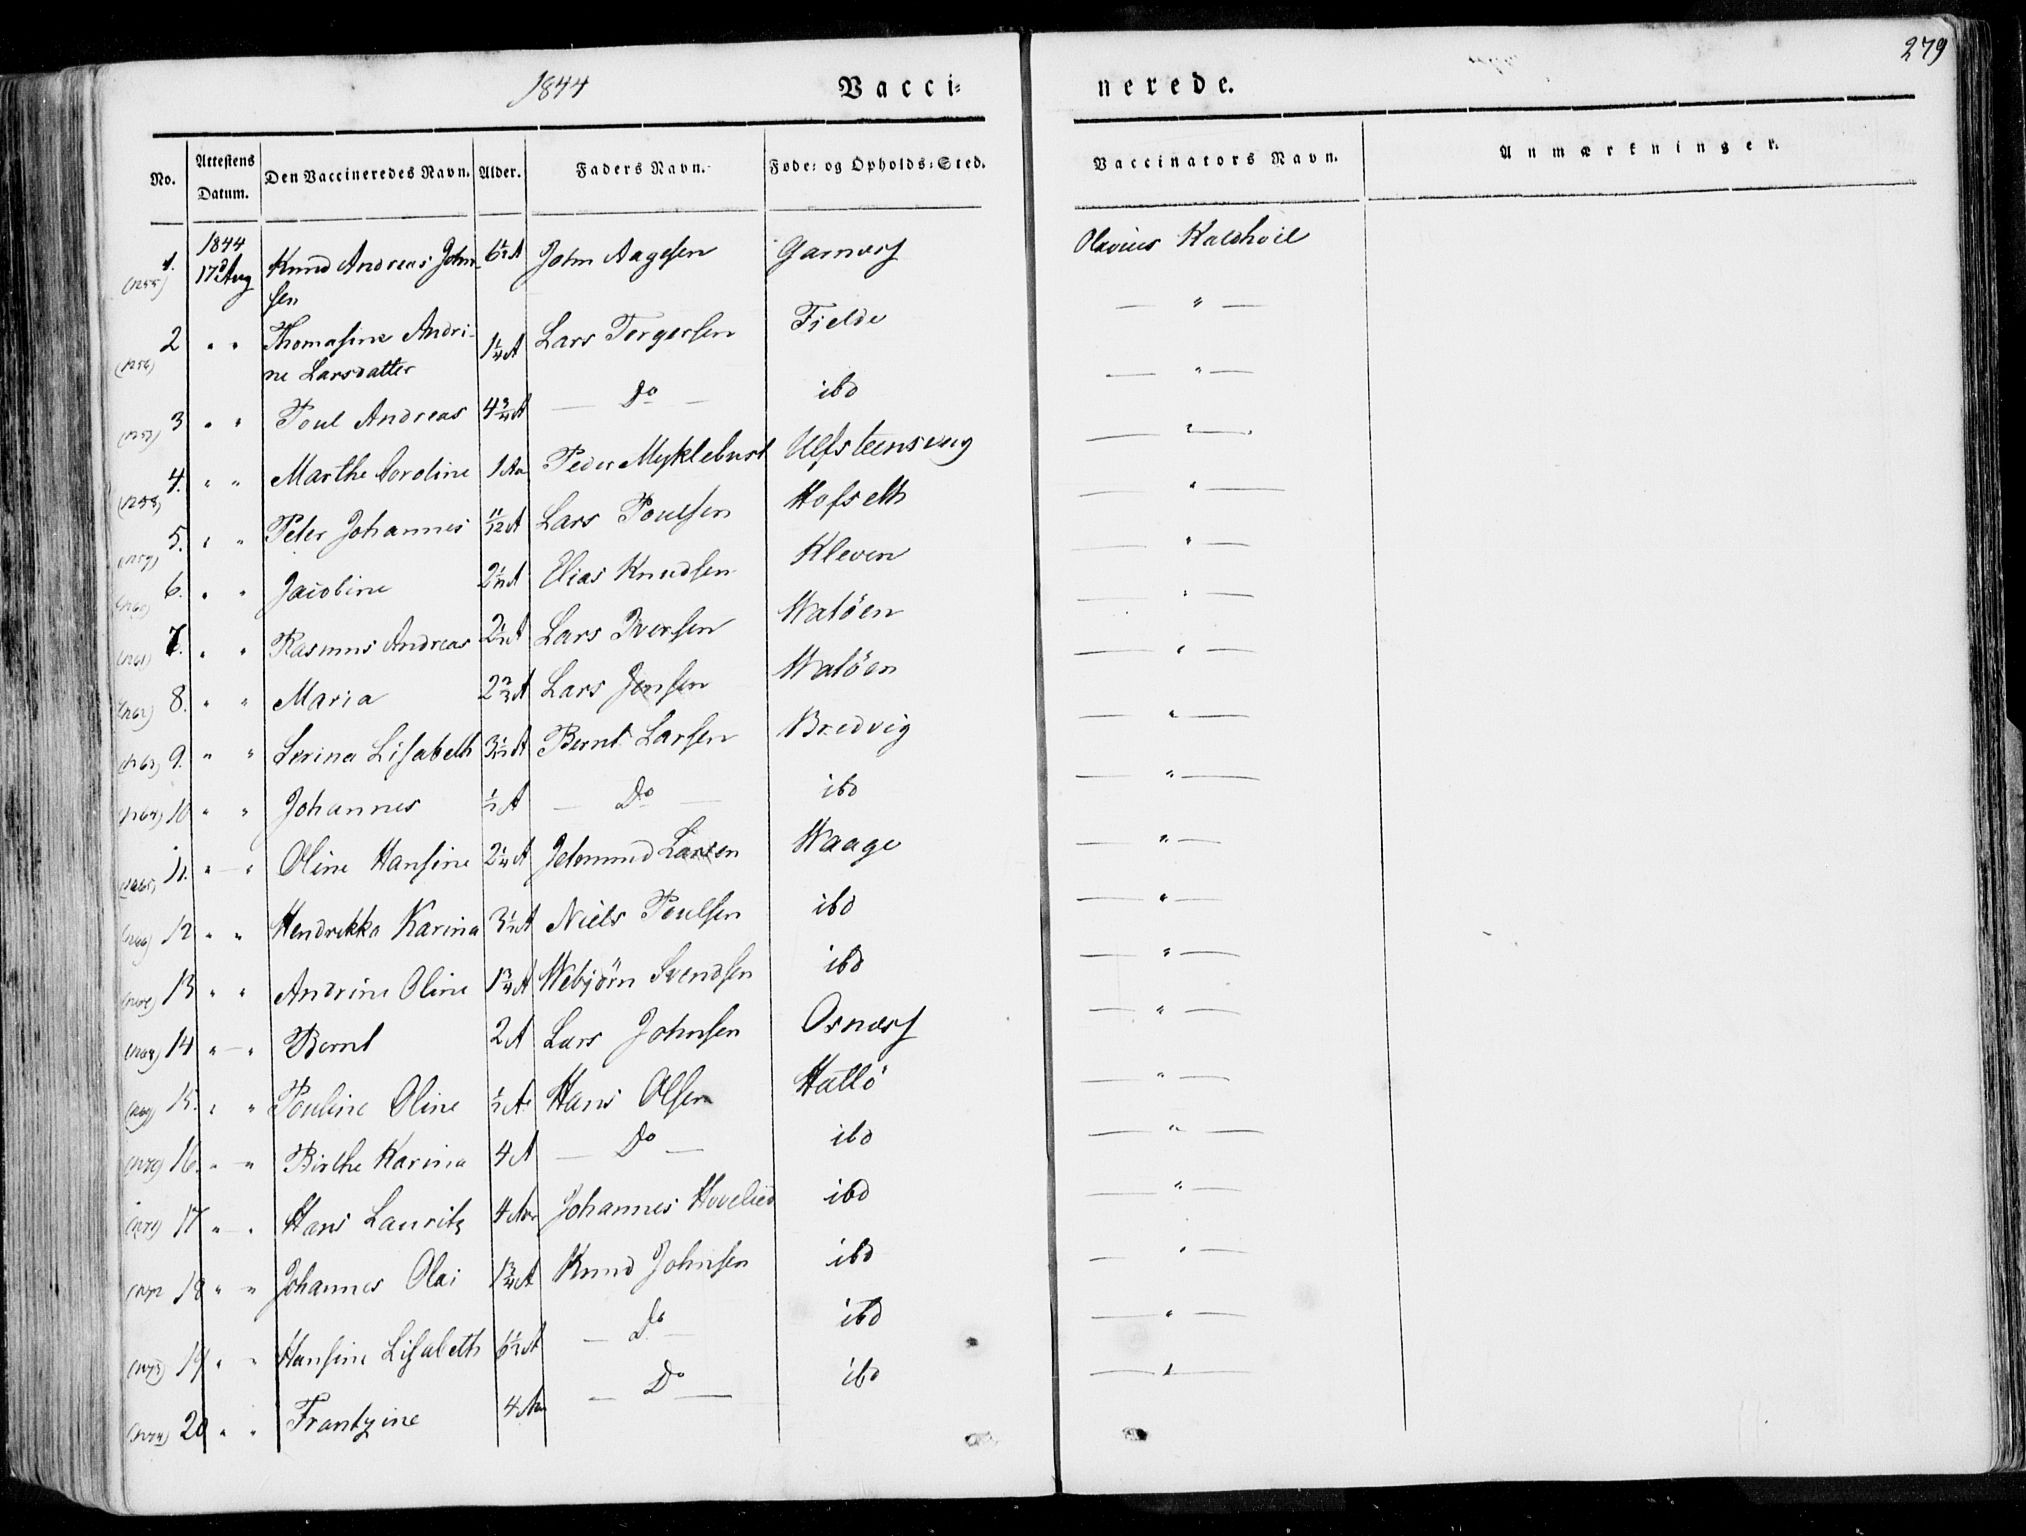 1844 Vacci- nerede. 279
No. Attestens Datum. Den Vaccineredes Navn. Alder. Faders Navn. Føde- og Opholds-Sted. Vaccinators Navn. Anmærkninger.
1844
(1255) 1. 17d Aug Knud Andreas John- 6½ A John Aagesen Garnæs Olavius Kaldhoel
sen
(1256) 2 " " Thomasine Andri- 1¼ A Lars Torgersen Fielde — " —
ne Larsdatter
(1257) 3 " " Poul Andreas 4¾ A — Do — ibd — " —
(1258) 4. " " Marthe Caroline 1 Aar Peder Myklebust Ulfsteensvug — " —
(1259) 5. " " Peter Johannes 11/12 A Lars Poulsen Hofseth — " —
(1260) 6. " " Jacobine 2½ A Elias Knudsen Kleven — " —
(1261) 7. " " Rasmus Andreas 2½ A Lars Iversen Watöen — " —
(1262) 8. " " Maria 2⅔ A Lars Jensen Watöen — " —
(1263) 9. " " Serina Lisabeth 3½ A Bernt Larsen Bredvig — " —
(1264) 10 " " Johannes ½ A — Do — ibd — " —
(1265) 11. " — " Oline Hansine 2¼ A Jetmund Larsen Waage — " —
(1266) 12 " " Hendrikka Karina 3½ A Niels Poulsen ibd — " —
(1267) 13 " " Andrine Oline 1¾ A Webjörn Svendsen ibd — " —
(1268) 14 " — " Bernt 2 A Lars Johnsen Osnæs — " —
(1269) 15. " " Pouline Oline ½ A Hans Olsen Hatlö — " —
(1270) 16. " — " Birthe Karina 4 A — Do — ibd — " —
(1271) 17 " — " Hans Lauritz 4 Aar Johannes Hovelied ibd — " —
(1272 18 " " Johannes Olai 1¾ A Knud Johnsen ibd — " —
(1273) 19 " " Hansine Lisabeth 6½ A — Do — ibd — " —
(1274) 20 " " Frantzine 4 Aar — Do — ibd — " —